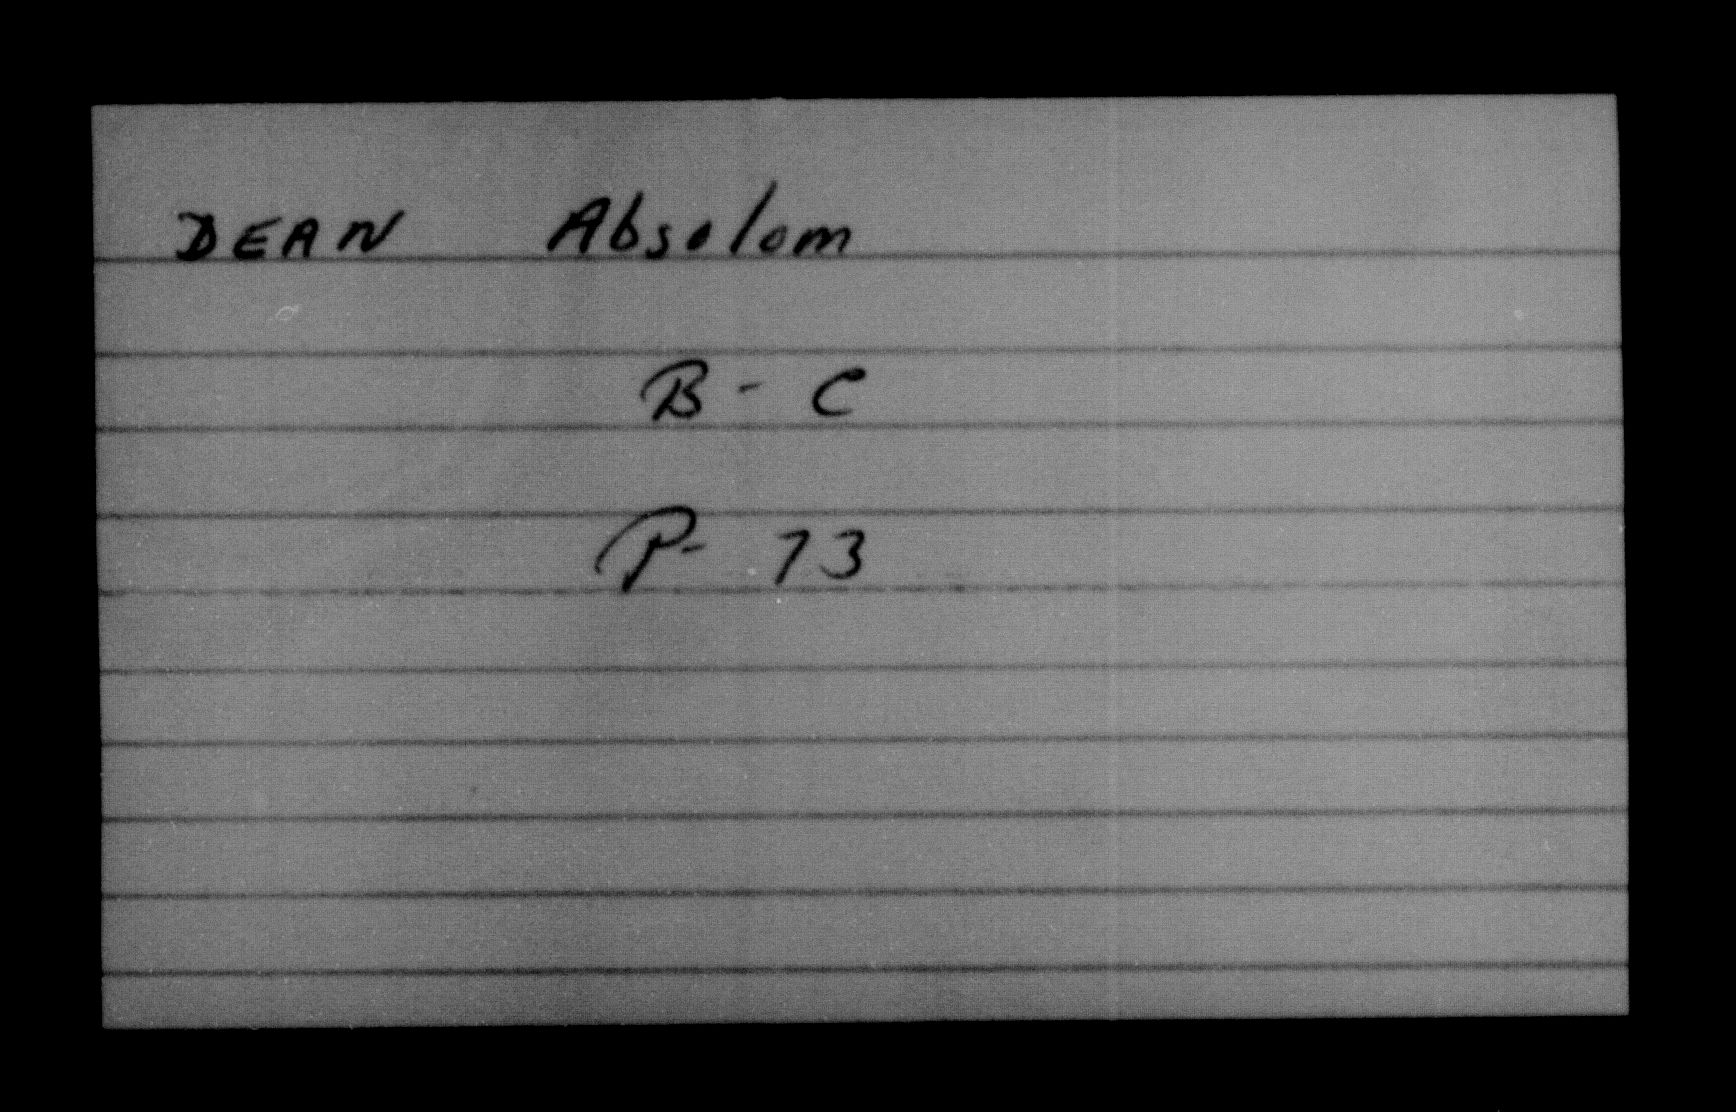 DEAN Absolom
B - C
P- 73